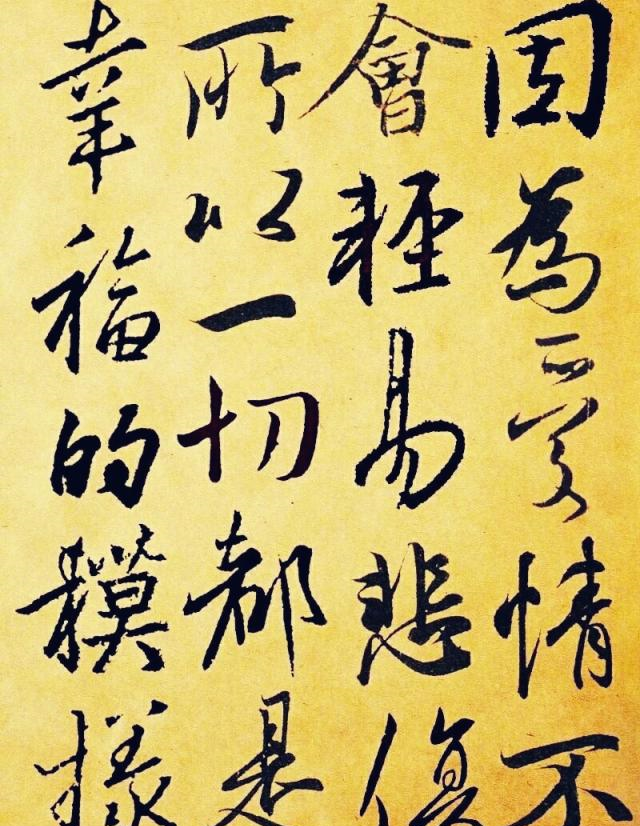 因為愛情不
會輕易悲傷
所以一切都是
幸福的模樣